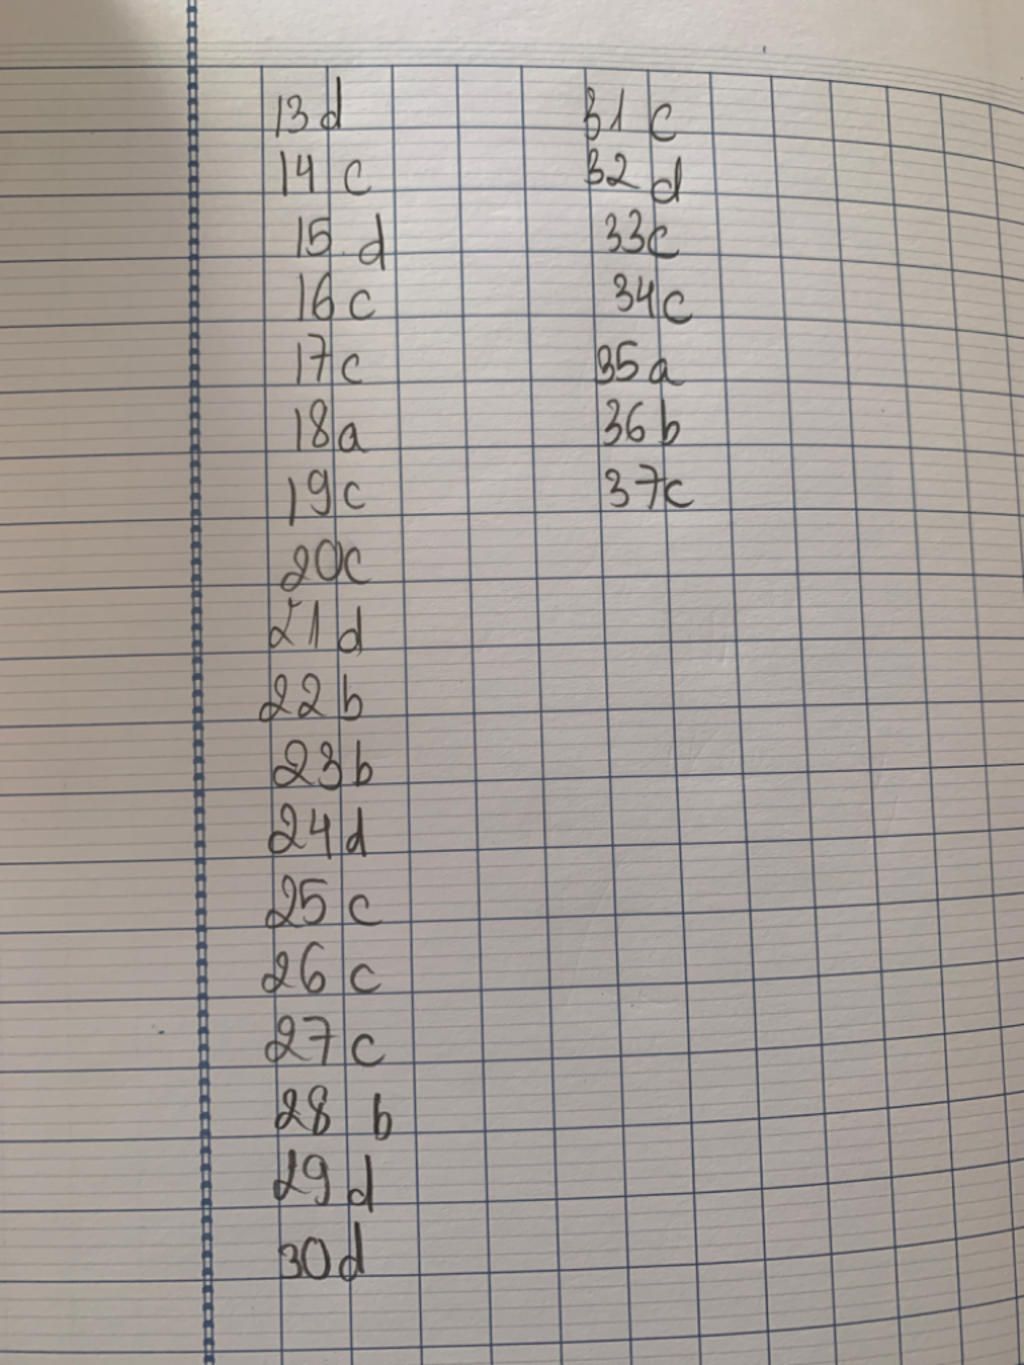 13 d
14 c
15 d
16 c
17 c
18 a
19 c
20 c
21 d
22 b
23 b
24 d
25 c
26 c
27 c
28 b
29 d
30 d
31 c
32 d
33 c
34 c
35 a
36 b
37 c